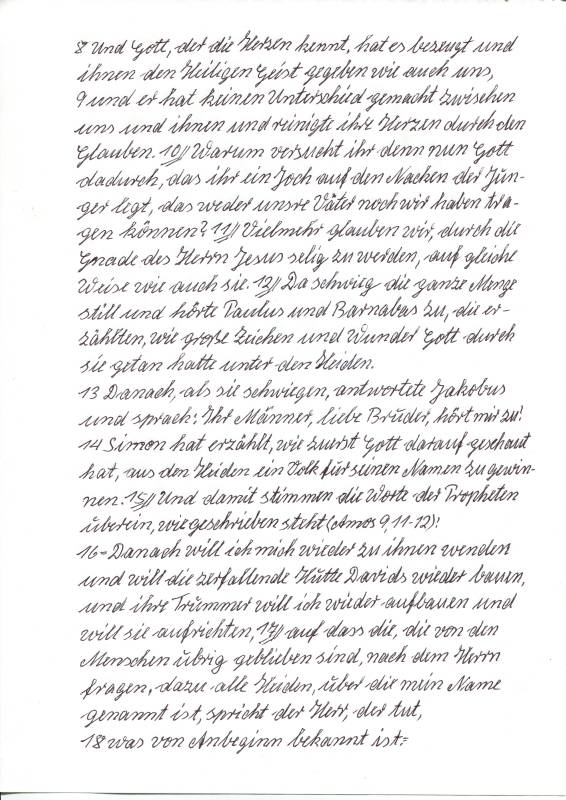 8 Und Gott, der die Herzen kennt, hat es bezeugt und
ihnen den Heiligen Geist gegeben wie auch uns,
9 und er hat keinen Unterschied gemacht zwischen
uns und ihnen und reinigte ihre Herzen durch den
Glauben. 10// Warum versucht ihr denn nun Gott
dadurch, das ihr ein Joch auf den Nacken der Jün-
ger legt, das weder unsre Väter noch wir haben tra-
gen können? 11// Vielmehr glauben wir, durch die
Gnade des Herrn Jesus selig zu werden, auf gleiche
Weise wie auch sie. 12// Da schwieg die ganze Menge
still und hörte Paulus und Barnabas zu, die er-
zählten, wie große Zeichen und Wunder Gott durch
sie getan hatte unter den Heiden.
13 Danach, als sie schwiegen, antwortete Jakobus
und sprach: Ihr Männer, liebe Brüder, hört mir zu!
14 Simon hat erzählt, wie zuerst Gott darauf geschaut
hat, aus den Heiden ein Volk für seinen Namen zu gewin-
nen. 15// Und damit stimmen die Worte der Propheten
überein, wie geschrieben steht (Amos 9,11-12):
16 =Danach will ich mich wieder zu ihnen wenden
und will die zerfallende Hütte Davids wieder bauen,
und ihre Trümmer will ich wieder aufbauen und
will sie aufrichten, 17// auf dass die, die von den
Menschen übrig geblieben sind, nach dem Herrn
fragen, dazu alle Heiden, über die mein Name
genannt ist, spricht der Herr, der tut,
18 was von Anbeginn bekannt ist.=